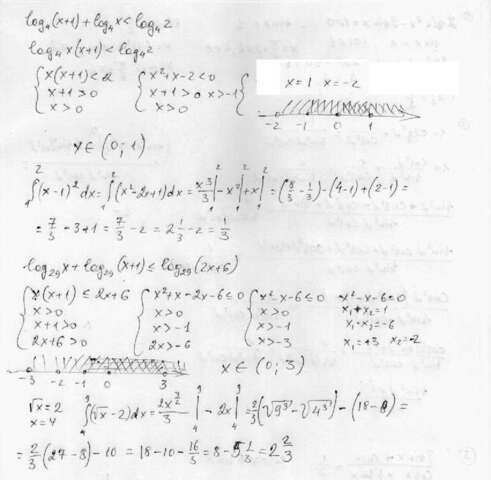 log₄(x+1)+log₄x<log₄2
log₄x(x+1)<log₄2
{x(x+1)<2 {x²+x-2<0 { x=1 x=-2
x+1>0 x+1>0 x>-1
x>0 x>0
-2 -1 0 1
x∈(0;1)
₁∫²(x-1)²dx=₁∫²(x²-2x+1)dx=x³/3|₁²-x²|₁²+x|₁²=(8/3-1/3)-(4-1)+(2-1)=
=7/3-3+1=7/3-2=2 1/3-2=1/3
log₂₉x+log₂₉(x+1)≤log₂₉(2x+6)
{x(x+1)≤2x+6 {x²+x-2x-6≤0 {x²-x-6≤0 x²-x-6=0
x>0 x>0 x>0 x₁+x₂=1
x+1>0 x>-1 x>-1 x₁·x₂=-6
2x+6>0 2x>-6 x>-3 x₁=+3 x₂=-2
-3 -2 -1 0 3 x∈(0;3)
√x=2
x=4 ₄∫⁹(√x-2)dx=2x^(3/2)/3|₄⁹-2x|₄⁹=2/3(√9³-√4³)-(18-8)=
=2/3(27-8)-10=18-10-16/3=8-5 1/3=2 2/3